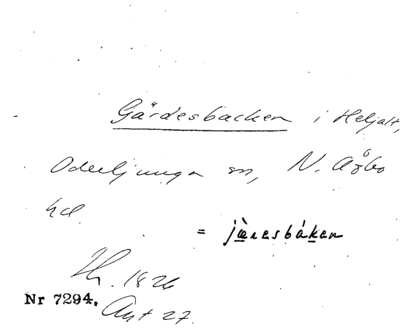 Gärdesbacken i Heljalt,
Oderljunga sn, N. Åsbo
hd.
= jæ̀resbáken
Th. 1826
Nr 7294. Ant 27.